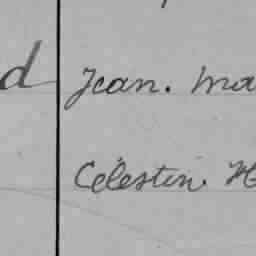 d Jean. Ma
Célestin. H